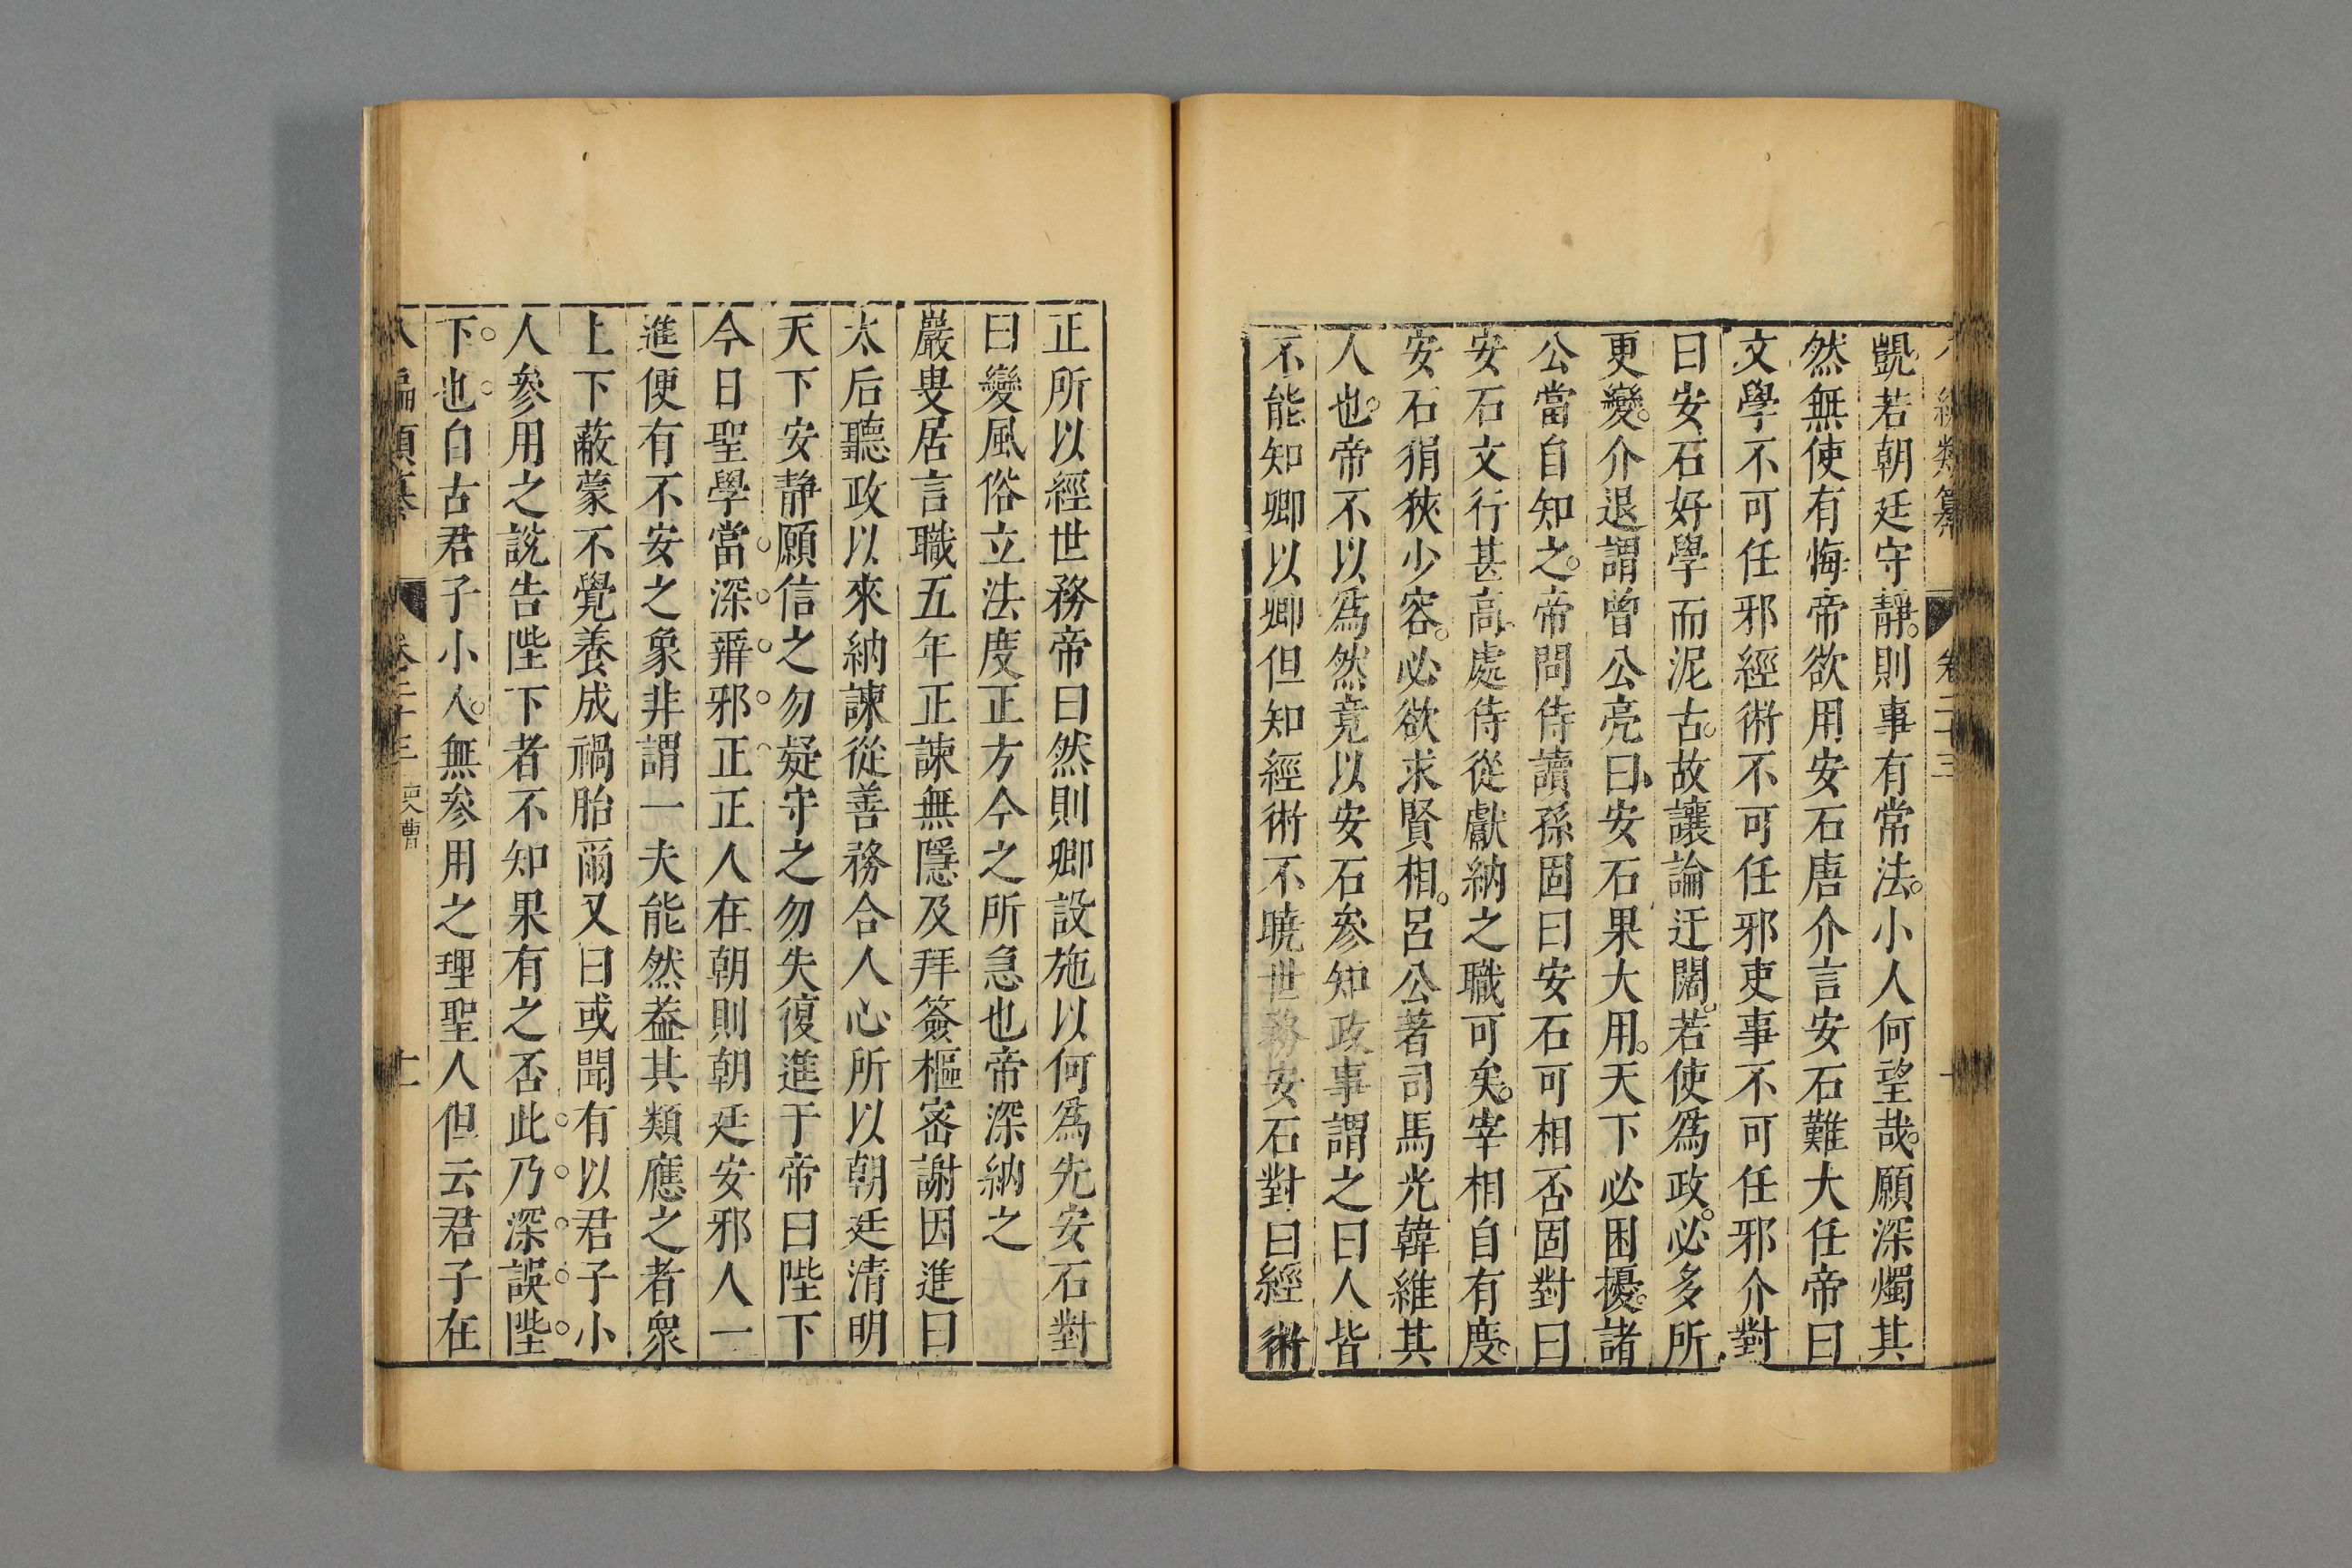 八編類纂 卷二十三
覬若朝廷守靜則事有常法小人何望哉願深燭其
然無使有悔帝欲用安石唐介言安石難大任帝曰
文學不可任邪經術不可任邪吏事不可任邪介對
曰安石好學而泥古故讓論迂闊若使爲政必多所
更變介退謂曾公亮曰安石果大用天下必困擾諸
公當自知之帝問侍讀孫固曰安石可相否固對曰
安石文行甚高處侍從獻納之職可矣宰相自有度
安石狷狹少容必欲求賢相呂公著司馬光韓維其
人也帝不以爲然竟以安石參知政事謂之曰人皆
不能知卿以卿但知經術不曉世務安石對曰經術
正所以經世務帝曰然則卿設施以何爲先安石對
曰變風俗立法度正方今之所急也帝深納之
嚴叟居言職五年正諫無隱及拜簽樞密謝因進曰
太后聽政以來納諫從善務合人心所以朝廷清明
天下安靜願信之勿疑守之勿失復進于帝曰陛下
今日聖學當深辯邪正正人在朝則朝廷安邪人一
進便有不安之象非謂一夫能然葢其類應之者衆
上下蔽蒙不覺養成禍胎爾又曰或聞有以君子小
人參用之說告陛下者不知果有之否此乃深誤陛
下也自古君子小人無參用之理聖人但云君子在
八編類纂 卷二十三 吏曹 十一